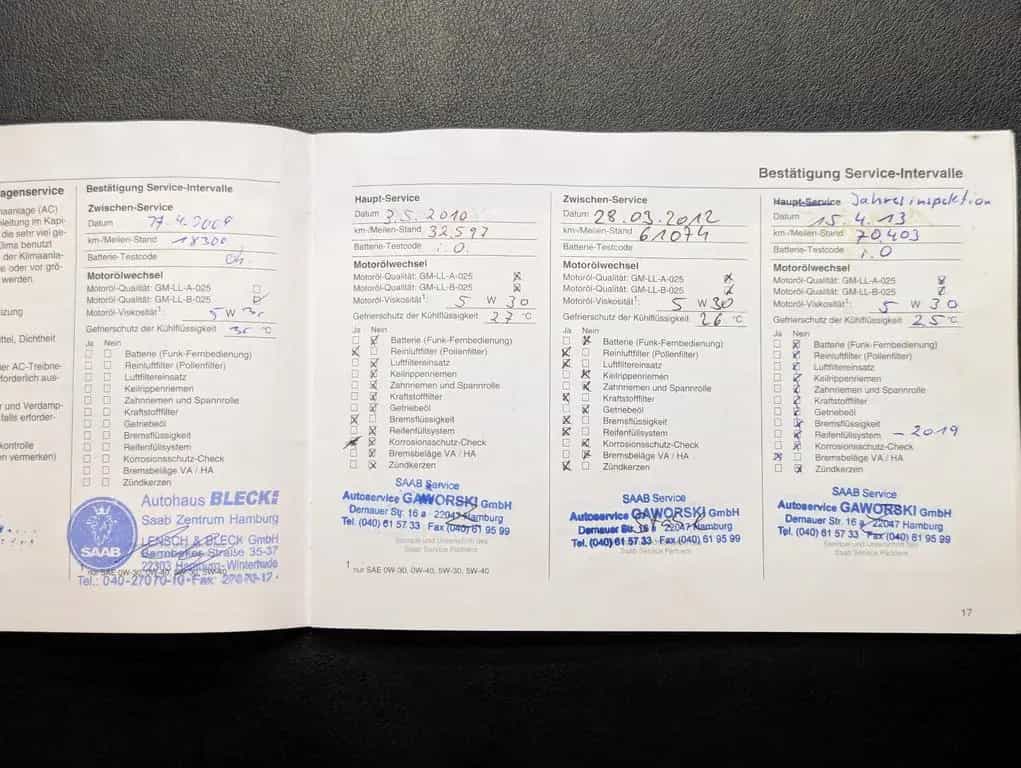 agenservice
maanlage (AC)
leitung im Kapi-
die sehr viel ge-
lima benutzt
der Klimaanla-
e oder vor grö-
werden.
izung
ttel, Dichtheit
er AC-Treibne-
forderlich aus-
r und Verdamp-
falls erforder-
kontrolle
en vermerken)
Bestätigung Service-Intervalle
Zwischen-Service
Datum
km-/Meilen-Stand 18300
Batterie-Testcode
Motorölwechsel
Motoröl-Qualität: GM-LL-A-025
Motoröl-Qualität: GM-LL-B-025
Motoröl-Viskosität¹: 5 W
Gefrierschutz der Kühlflüssigkeit °C
Ja Nein
Batterie (Funk-Fernbedienung)
Reinluftfilter (Pollenfilter)
Luftfiltereinsatz
Keilrippenriemen
Zahnriemen und Spannrolle
Kraftstofffilter
Getriebeöl
Bremsflüssigkeit
Reifenfüllsystem
Korrosionsschutz-Check
Bremsbeläge VA / HA
Zündkerzen
SAAB
Autohaus BLECK
Saab Zentrum Hamburg
LENSCH & BLECK GmbH
Barmbeker Straße 35-37
22303 Hamburg-Winterhude
¹ nur SAE 0W-30, 0W-40, 5W-30, 5W-40
Tel.: 040-27070-10 · Fax: 27070-17
Bestätigung Service-Intervalle
Haupt-Service
Datum 3.5.2010
km-/Meilen-Stand 32597
Batterie-Testcode i.O.
Motorölwechsel
Motoröl-Qualität: GM-LL-A-025
Motoröl-Qualität: GM-LL-B-025
Motoröl-Viskosität¹: 5 W 30
Gefrierschutz der Kühlflüssigkeit 27 °C
Ja Nein
Batterie (Funk-Fernbedienung)
Reinluftfilter (Pollenfilter)
Luftfiltereinsatz
Keilrippenriemen
Zahnriemen und Spannrolle
Kraftstofffilter
Getriebeöl
Bremsflüssigkeit
Reifenfüllsystem
Korrosionsschutz-Check
Bremsbeläge VA / HA
Zündkerzen
SAAB Service
Autoservice GAWORSKI GmbH
Dernauer Str. 16 a · 22047 Hamburg
Tel. (040) 61 57 33 Fax (040) 61 95 99
Stempel und Unterschrift des
Saab Service Partners
¹ nur SAE 0W-30, 0W-40, 5W-30, 5W-40
Zwischen-Service
Datum 28.03.2012
km-/Meilen-Stand 61074
Batterie-Testcode
Motorölwechsel
Motoröl-Qualität: GM-LL-A-025
Motoröl-Qualität: GM-LL-B-025
Motoröl-Viskosität¹: 5 W 30
Gefrierschutz der Kühlflüssigkeit 26 °C
Ja Nein
Batterie (Funk-Fernbedienung)
Reinluftfilter (Pollenfilter)
Luftfiltereinsatz
Keilrippenriemen
Zahnriemen und Spannrolle
Kraftstofffilter
Getriebeöl
Bremsflüssigkeit
Reifenfüllsystem
Korrosionsschutz-Check
Bremsbeläge VA / HA
Zündkerzen
SAAB Service
Autoservice GAWORSKI GmbH
Dernauer Str. 16 a · 22047 Hamburg
Tel. (040) 61 57 33 · Fax (040) 61 95 99
Saab Service Partners
Haupt-Service Jahresinspektion
Datum 15.4.13
km-/Meilen-Stand 70.403
Batterie-Testcode i.O
Motorölwechsel
Motoröl-Qualität: GM-LL-A-025
Motoröl-Qualität: GM-LL-B-025
Motoröl-Viskosität¹: 5 W 30
Gefrierschutz der Kühlflüssigkeit 25 °C
Ja Nein
Batterie (Funk-Fernbedienung)
Reinluftfilter (Pollenfilter)
Luftfiltereinsatz
Keilrippenriemen
Zahnriemen und Spannrolle
Kraftstofffilter
Getriebeöl
Bremsflüssigkeit
Reifenfüllsystem – 2019
Korrosionsschutz-Check
Bremsbeläge VA / HA
Zündkerzen
SAAB Service
Autoservice GAWORSKI GmbH
Dernauer Str. 16 a · 22047 Hamburg
Tel. (040) 61 57 33 Fax (040) 61 95 99
Stempel und Unterschrift des
Saab Service Partners
17